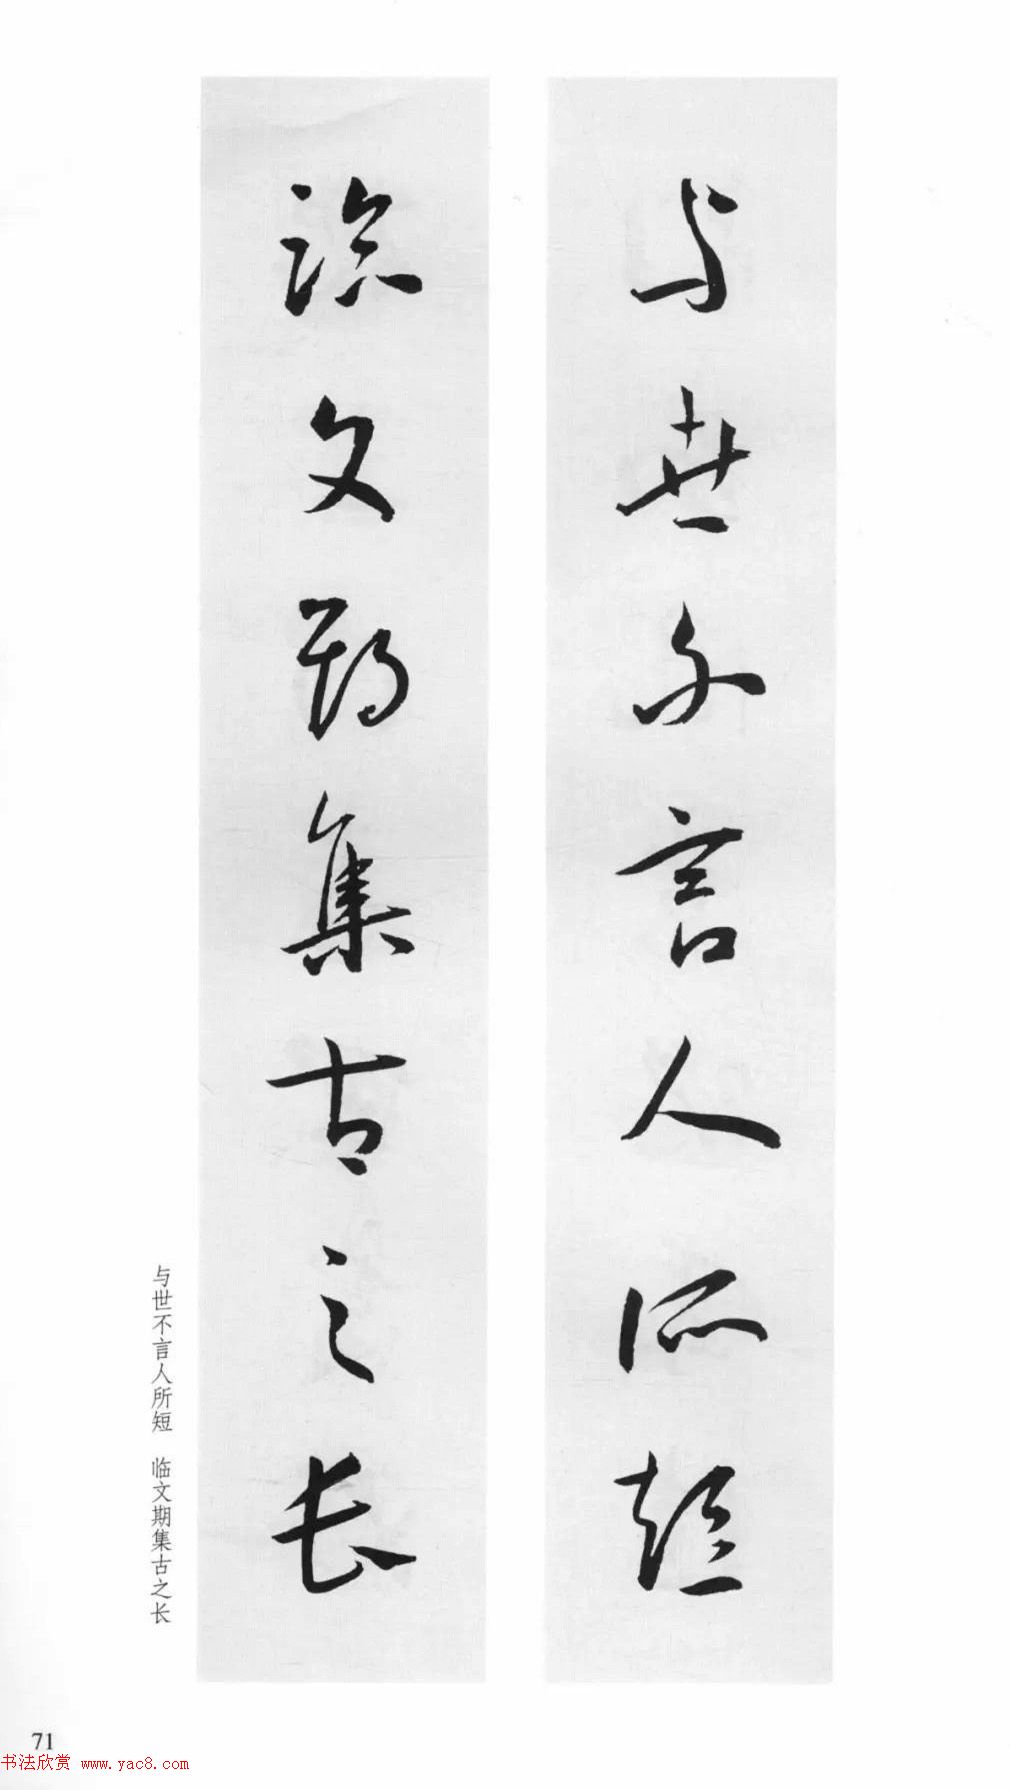 与世不言人所短
临文期集古之长
与世不言人所短 临文期集古之长
71
书法欣赏 www.yac8.com